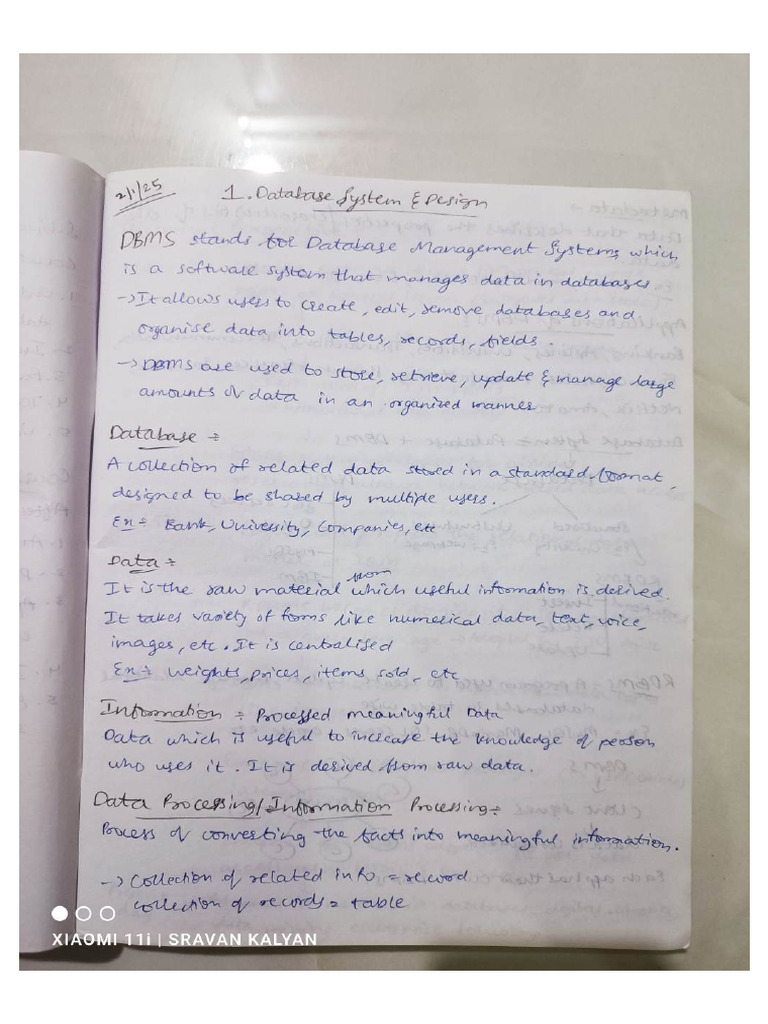 2/1/25
1. Database System & Design
DBMS stands for Database Management Systems, which
is a software system that manages data in databases.
→ It allows users to create, edit, remove databases and
organise data into tables, records, fields.
→ DBMS are used to store, retrieve, update & manage large
amounts of data in an organized manner
Database :-
A collection of related data stored in a standard format,
designed to be shared by multiple users.
Ex :- Bank, University, Companies, etc
Data :-
It is the raw material from which useful information is derived.
It takes variety of forms like numerical data, text, voice,
images, etc. It is centralised
Ex :- weights, prices, items sold, etc
Information :- Processed meaningful Data
Data which is useful to increase the knowledge of person
who uses it. It is derived from raw data.
Data Processing/Information Processing :-
Process of converting the facts into meaningful information.
→ Collection of related info = record
collection of records = table
XIAOMI 11i | SRAVAN KALYAN